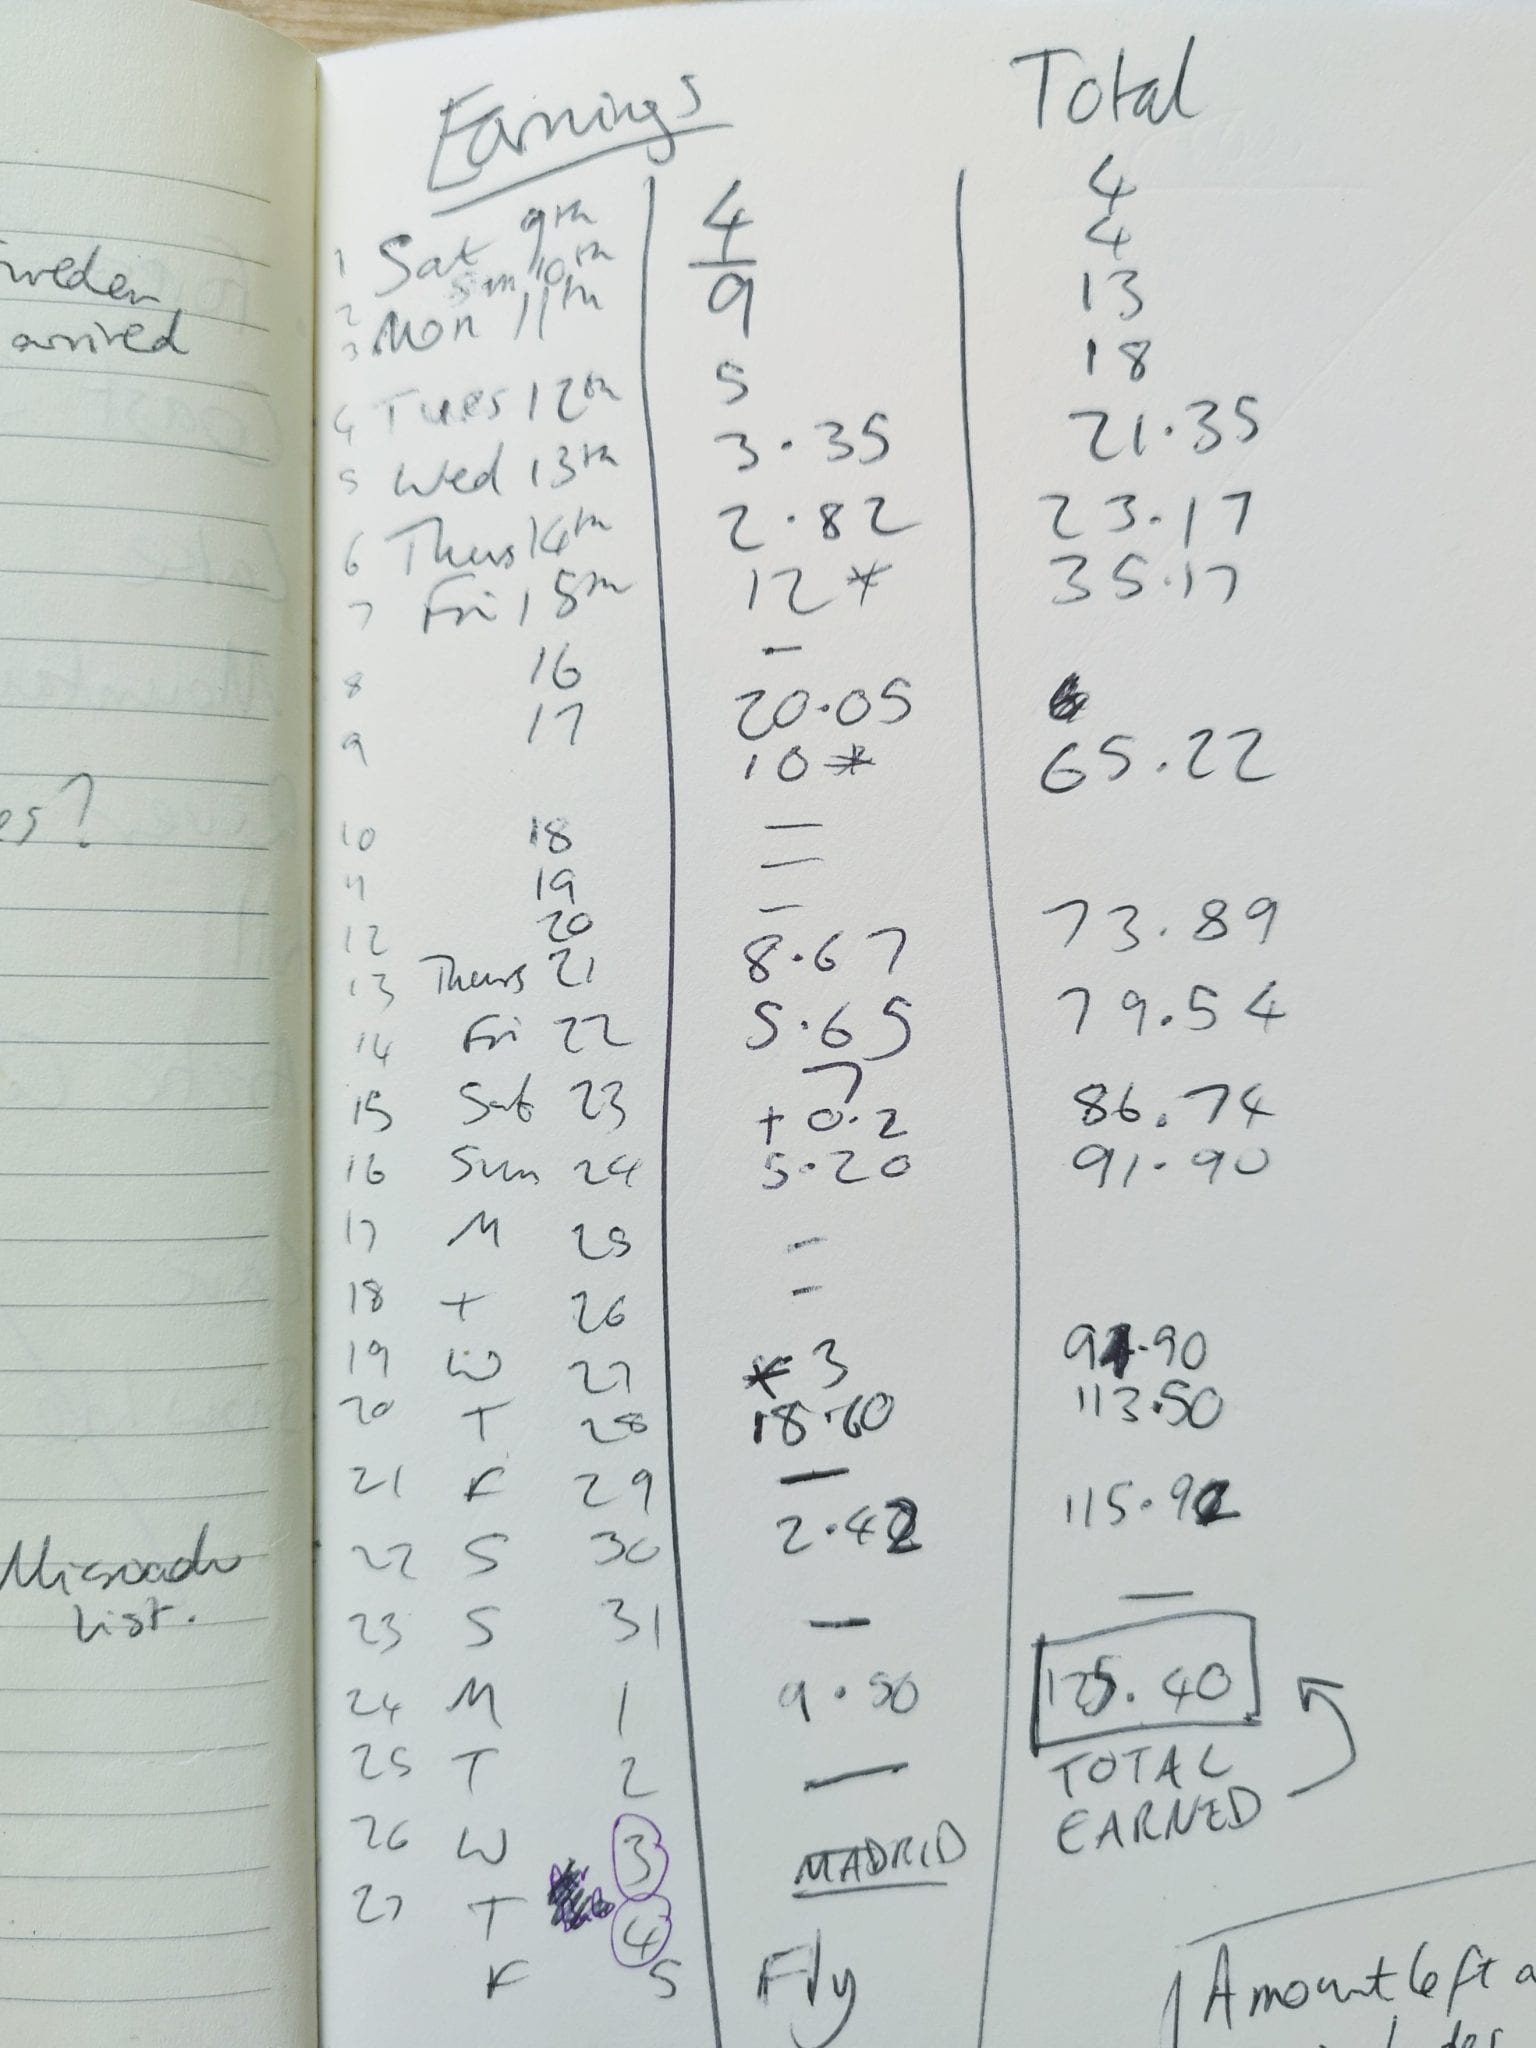 Earnings Total
1 Sat 9th 4 4
2 Sun 10th — 4
3 Mon 11th 9 13
4 Tues 12th 5 18
5 Wed 13th 3.35 21.35
6 Thurs 14th 2.82 23.17
7 Fri 15th 12 * 35.17
8 16 -
9 17 20.05
10 * 65.22
10 18 —
11 19 —
12 20 —
13 Thurs 21 8.67 73.89
14 Fri 22 5.65 79.54
15 Sat 23 7
+ 0.2 86.74
16 Sun 24 5.20 91.90
17 M 25 -
18 T 26 -
19 W 27 * 3 94.90
20 T 28 18.60 113.50
21 F 29 —
22 S 30 2.42 115.92
23 S 31 — —
24 M 1 9.50 125.40
25 T 2 — TOTAL
EARNED
26 W 3 MADRID
27 T 4
F 5 Fly
Amount left
Sweden
arrived
es?
list.